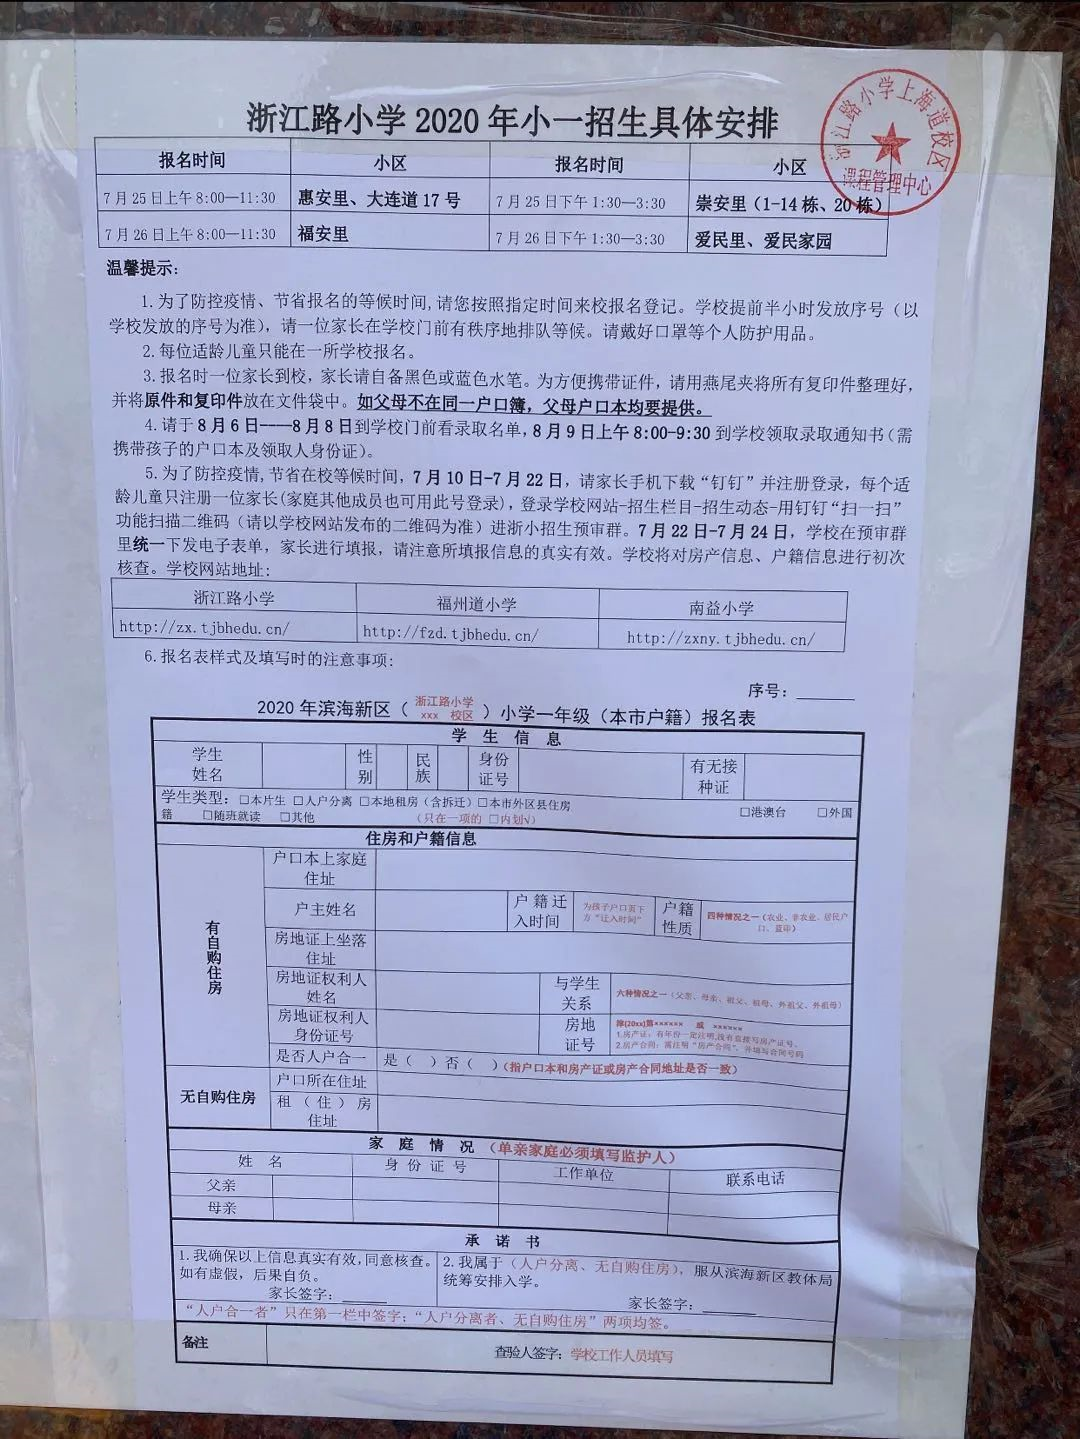 浙江路小学 2020 年小一招生具体安排
浙江路小学上海道校区
课程管理中心
报名时间 小区 报名时间 小区
7 月 25 日上午 8:00—11:30 惠安里、大连道 17 号 7 月 25 日下午 1:30—3:30 崇安里（1-14 栋、20 栋）
7 月 26 日上午 8:00—11:30 福安里 7 月 26 日下午 1:30—3:30 爱民里、爱民家园
温馨提示：
1.为了防控疫情、节省报名的等候时间,请您按照指定时间来校报名登记。学校提前半小时发放序号（以
学校发放的序号为准），请一位家长在学校门前有秩序地排队等候。请戴好口罩等个人防护用品。
2.每位适龄儿童只能在一所学校报名。
3.报名时一位家长到校，家长请自备黑色或蓝色水笔。为方便携带证件，请用燕尾夹将所有复印件整理好，
并将原件和复印件放在文件袋中。如父母不在同一户口簿，父母户口本均要提供。
4.请于 8 月 6 日----8 月 8 日到学校门前看录取名单，8 月 9 日上午 8:00-9:30 到学校领取录取通知书（需
携带孩子的户口本及领取人身份证）。
5.为了防控疫情,节省在校等候时间，7 月 10 日-7 月 22 日，请家长手机下载“钉钉”并注册登录，每个适
龄儿童只注册一位家长(家庭其他成员也可用此号登录)，登录学校网站-招生栏目-招生动态-用钉钉“扫一扫”
功能扫描二维码（请以学校网站发布的二维码为准）进浙小招生预审群。7 月 22 日-7 月 24 日，学校在预审群
里统一下发电子表单，家长进行填报，请注意所填报信息的真实有效。学校将对房产信息、户籍信息进行初次
核查。学校网站地址：
浙江路小学 福州道小学 南益小学
http://zx.tjbhedu.cn/ http://fzd.tjbhedu.cn/ http://zxny.tjbhedu.cn/
6.报名表样式及填写时的注意事项：
序号：______
2020 年滨海新区（浙江路小学 xxx 校区）小学一年级（本市户籍）报名表
学 生 信 息
学生姓名 性别 民族 身份证号 有无接种证
学生类型：□本片生 □人户分离 □本地租房（含拆迁）□本市外区县住房 □港澳台 □外国
籍 □随班就读 □其他 （只在一项的 □内划√）
住房和户籍信息
有自购住房
户口本上家庭住址
户主姓名 户籍迁入时间 为孩子户口页下方“迁入时间” 户籍性质 四种情况之一（农业、非农业、居民户口、蓝印）
房地证上坐落住址
房地证权利人姓名 与学生关系 六种情况之一（父亲、母亲、祖父、祖母、外祖父、外祖母）
房地证权利人身份证号 房地证号 津(20xx)第×××××× 或 ××××××
1.房产证：有年份一定注明,没有直接写房产证号。
2.房产合同：需注明“房产合同”，并填写合同号码
是否人户合一 是（ ）否（ ）（指户口本和房产证或房产合同地址是否一致）
无自购住房
户口所在住址
租（住）房住址
家 庭 情 况 （单亲家庭必须填写监护人）
姓 名 身 份 证 号 工作单位 联系电话
父亲
母亲
承 诺 书
1.我确保以上信息真实有效,同意核查。
如有虚假，后果自负。
家长签字：______
2.我属于（人户分离、无自购住房），服从滨海新区教体局
统筹安排入学。
家长签字：______
“人户合一者”只在第一栏中签字；“人户分离者、无自购住房”两项均签。
备注
查验人签字：学校工作人员填写